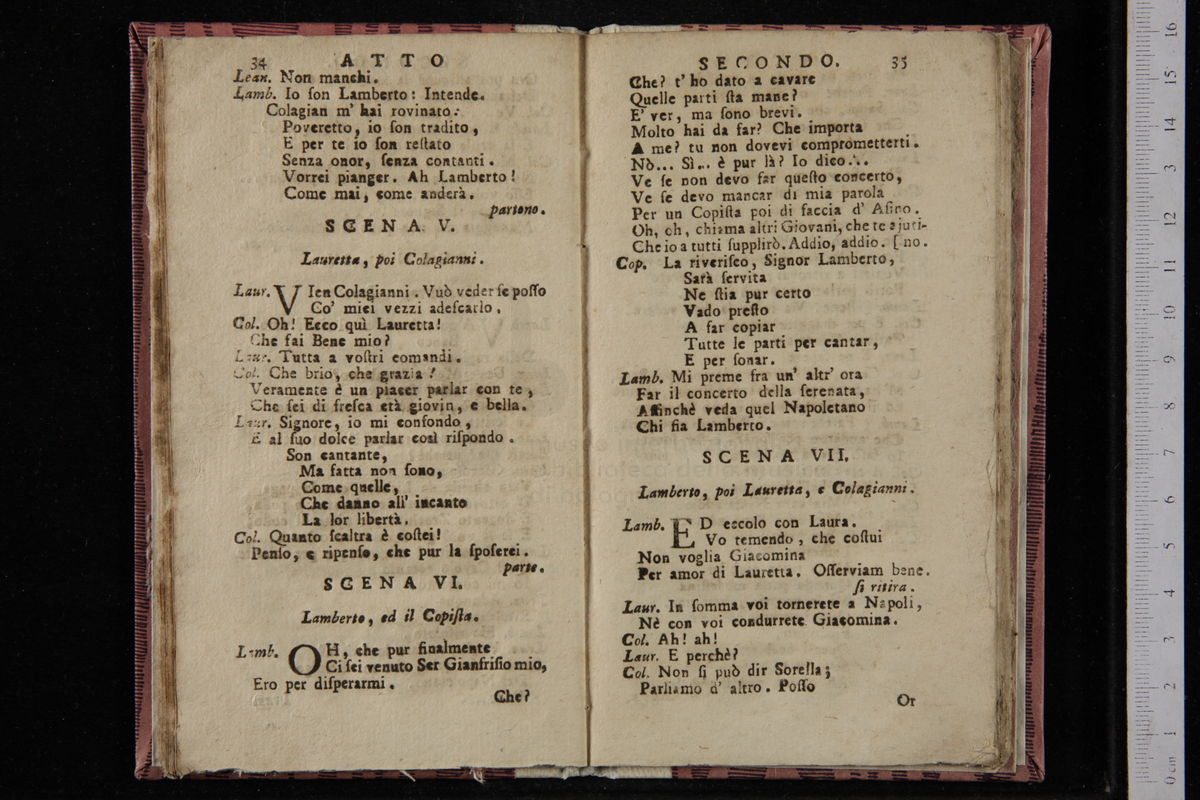 34 ATTO
Lean. Non manchi.
Lamb. Io ſon Lamberto: Intende.
Colagian m' hai rovinato:
Poveretto, io ſon tradito,
E per te io ſon reſtato
Senza onor, ſenza contanti.
Vorrei pianger. Ah Lamberto!
Come mai, come anderà.
partono.
SCENA V.
Lauretta, poi Colagianni.
Laur. VIen Colagianni. Vuò veder ſe poſſo
Co' miei vezzi adeſcarlo.
Col. Oh! Ecco quì Lauretta!
Che fai Bene mio?
Laur. Tutta a voſtri comandi.
Col. Che brio, che grazia!
Veramente è un piacer parlar con te,
Che ſei di freſca età giovin, e bella.
Laur. Signore, io mi confondo,
E al ſuo dolce parlar così riſpondo.
Son cantante,
Ma fatta non ſono,
Come quelle,
Che danno all' incanto
La lor libertà.
Col. Quanto ſcaltra è coſtei!
Penſo, e ripenſo, che pur la ſpoſerei.
parte.
SCENA VI.
Lamberto, ed il Copiſta.
Lamb. OH, che pur finalmente
Ci ſei venuto Ser Gianfriſio mio,
Ero per diſperarmi.
Che?
SECONDO. 35
Che? t' ho dato a cavare
Quelle parti ſta mane?
E' ver, ma ſono brevi.
Molto hai da far? Che importa
A me? tu non dovevi comprometterti.
Nò... Sì... è pur là? Io dico...
Ve ſe non devo far queſto concerto,
Ve ſe devo mancar di mia parola
Per un Copiſta poi di faccia d' Aſino.
Oh, eh, chiama altri Giovani, che te ajuti-
Che io a tutti ſupplirò. Addio, addio. [no.
Cop. La riveriſco, Signor Lamberto,
Sarà ſervita
Ne ſtia pur certo
Vado preſto
A far copiar
Tutte le parti per cantar,
E per ſonar.
Lamb. Mi preme fra un' altr' ora
Far il concerto della ſerenata,
Affinchè veda quel Napoletano
Chi ſia Lamberto.
SCENA VII.
Lamberto, poi Lauretta, e Colagianni.
Lamb. ED eccolo con Laura.
Vo temendo, che coſtui
Non voglia Giacomina
Per amor di Lauretta. Oſſerviam bene.
ſi ritira.
Laur. In ſomma voi tornerete a Napoli,
Nè con voi condurrete Giacomina.
Col. Ah! ah!
Laur. E perchè?
Col. Non ſi può dir Sorella;
Parliamo d' altro. Poſſo
Or
0 cm 1 2 3 4 5 6 7 8 9 10 11 12 13 14 15 16